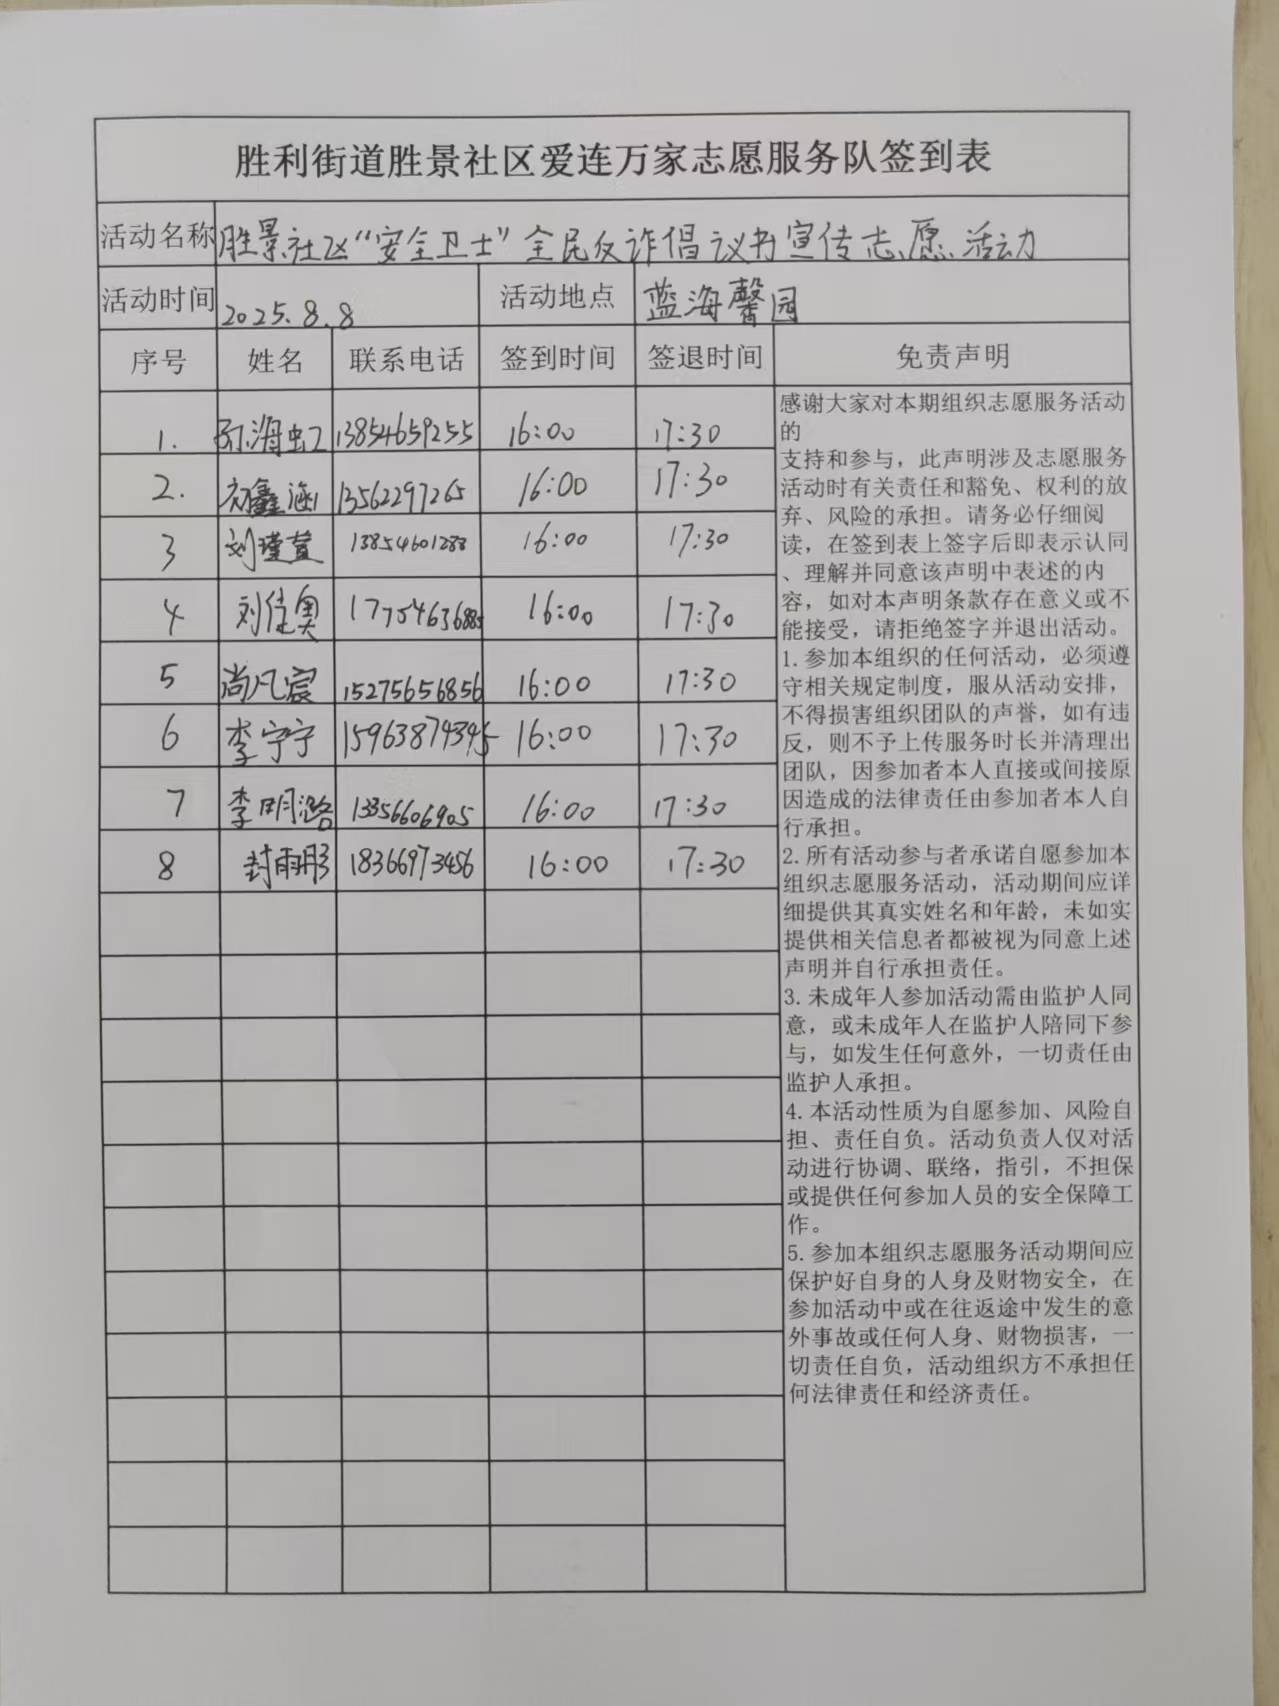 胜利街道胜景社区爱连万家志愿服务队签到表
活动名称 胜景社区“安全卫士”全民反诈倡议书宣传志愿活动
活动时间 2025.8.8 活动地点 蓝海馨园
序号 姓名 联系电话 签到时间 签退时间 免责声明
1. 海虹 13854659255 16:00 17:30
2. 鑫涵 13562297265 16:00 17:30
3 刘瑾萱 13854601288 16:00 17:30
4 刘佳奥 17754636885 16:00 17:30
5 尚凡宸 15275656856 16:00 17:30
6 李宁宁 15963874345 16:00 17:30
7 李明潞 13356606905 16:00 17:30
8 封雨彤 18366973456 16:00 17:30
感谢大家对本期组织志愿服务活动
的
支持和参与，此声明涉及志愿服务
活动时有关责任和豁免、权利的放
弃、风险的承担。请务必仔细阅
读，在签到表上签字后即表示认同
、理解并同意该声明中表述的内
容，如对本声明条款存在意义或不
能接受，请拒绝签字并退出活动。
1.参加本组织的任何活动，必须遵
守相关规定制度，服从活动安排，
不得损害组织团队的声誉，如有违
反，则不予上传服务时长并清理出
团队，因参加者本人直接或间接原
因造成的法律责任由参加者本人自
行承担。
2.所有活动参与者承诺自愿参加本
组织志愿服务活动，活动期间应详
细提供其真实姓名和年龄，未如实
提供相关信息者都被视为同意上述
声明并自行承担责任。
3.未成年人参加活动需由监护人同
意，或未成年人在监护人陪同下参
与，如发生任何意外，一切责任由
监护人承担。
4.本活动性质为自愿参加、风险自
担、责任自负。活动负责人仅对活
动进行协调、联络，指引，不担保
或提供任何参加人员的安全保障工
作。
5.参加本组织志愿服务活动期间应
保护好自身的人身及财物安全，在
参加活动中或在往返途中发生的意
外事故或任何人身、财物损害，一
切责任自负，活动组织方不承担任
何法律责任和经济责任。